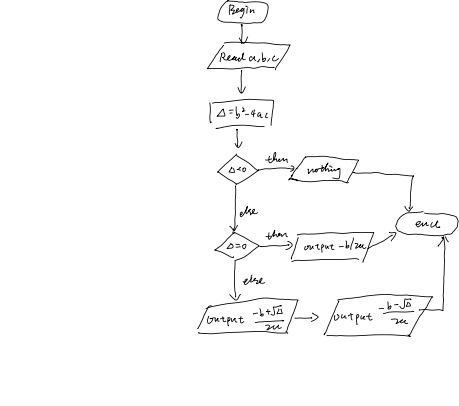 Begin
Read a,b,c
Δ=b²-4ac
Δ<0
then
nothing
else
end
Δ=0
then
output -b/2a
else
output (-b+√Δ)/2a
output (-b-√Δ)/2a